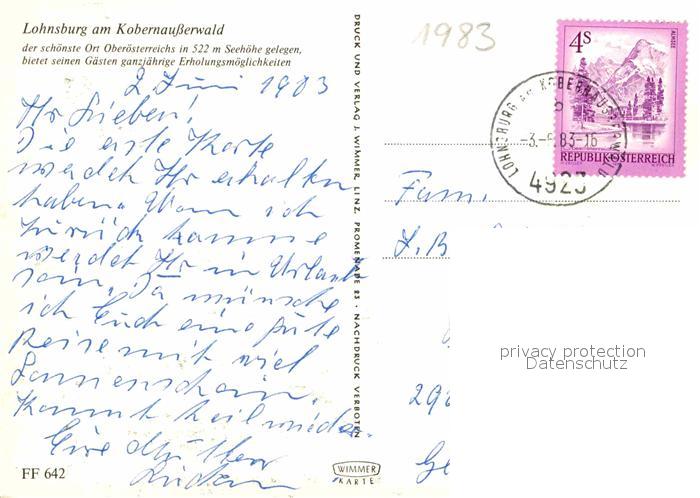 Lohnsburg am Kobernaußerwald
der schönste Ort Oberösterreichs in 522 m Seehöhe gelegen,
bietet seinen Gästen ganzjährige Erholungsmöglichkeiten
2 Juni 1983
Ihr Lieben!
Die erste Karte
werdet Ihr erhalten
haben. Wenn ich
zurück komme
werdet Ihr in Urlaub
sein. Da wünsche
ich Euch eine gute
Reise mit viel
Sonnenschein.
Kommt heil wieder.
Eure Mutter
FF 642
DRUCK UND VERLAG J. WIMMER LINZ, PROMENADE 23 · NACHDRUCK VERBOTEN
WIMMER
KARTE
1983
4S
ALMSEE
REPUBLIK ÖSTERREICH
LOHNSBURG am KOBERNAUSSERWALD
-3.-6.83-16
4923
Fam.
z.B
292
Ge
privacy protection
Datenschutz